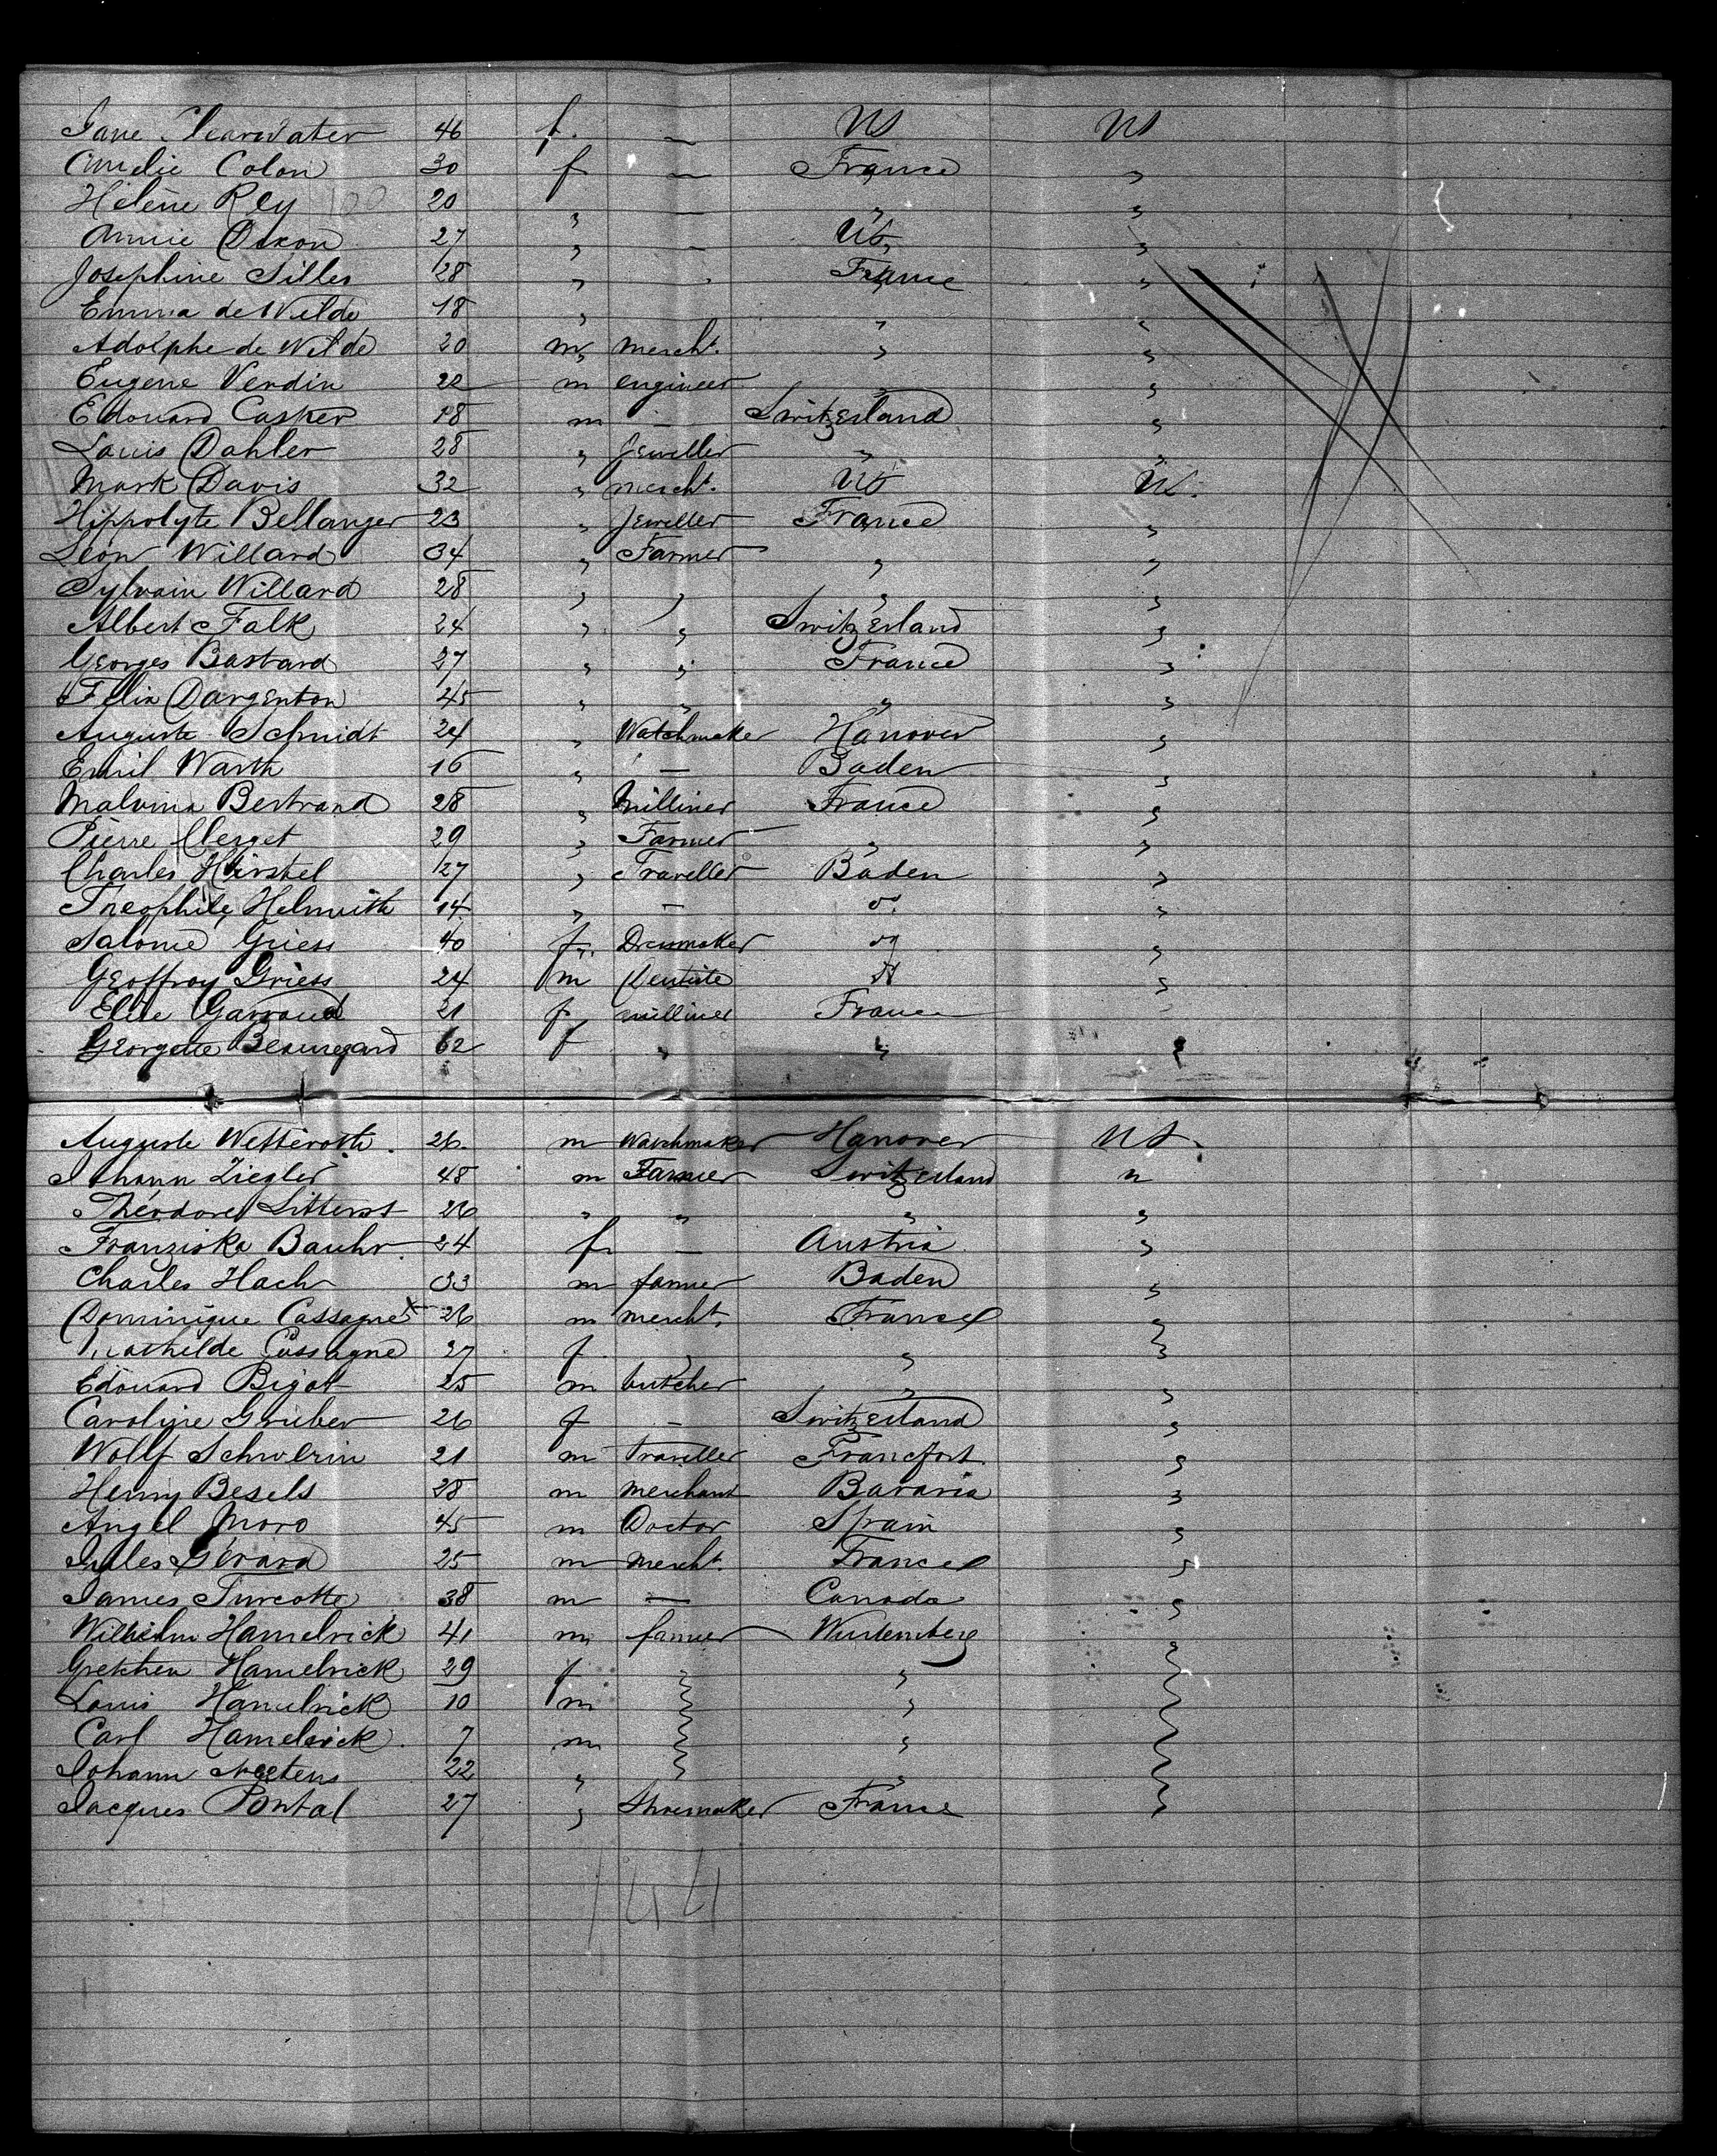 Jane Clearwater 46 f. — US US
Amelie Colon 30 f — France "
Hélène Rey 100 20 " — " "
Annie Dixon 27 " — US "
Josephine Silles 28 " " France "
Emma de Wilde 18 " " "
Adolphe de Wilde 20 m mercht. " "
Eugene Verdin 22 m engineer " "
Edouard Casper 18 m — Switzerland "
Louis Dahler 28 " Jeweller " "
Mark Davis 32 " mercht. US US.
Hippolyte Bellanger 23 " Jeweller France "
Léon Willard 34 " Farmer " "
Sylvain Willard 28 " " " "
Albert Falk 24 " " Switzerland "
Georges Bastard 27 " " France "
Felix Dargenton 45 " " " "
Auguste Schmidt 24 " Watchmaker Hanover "
Emil Warth 16 " — Baden "
Malvina Bertrand 28 " Milliner France "
Pierre Clerget 29 " Farmer " "
Charles Hirstel 27 " Traveller Baden "
Theophile Helmuith 14 " — do "
Salomé Griess 40 f. Dressmaker do "
Geoffroy Griess 24 m Dentiste do "
Elise Garraud 21 f milliner France
Georgette Beauregard 62 f " " "
Auguste Wetteroth. 26. m Watchmaker Hanover US.
Johann Ziegler 48 m Farmer Switzerland "
Théodore Litterst 26 " " " "
Franziska Bauhr 24 f — Austria "
Charles Hach 33 m farmer Baden "
Dominique Cassagne x 26 m mercht. France "
Mathilde Cassagne 27 f " " "
Edouard Bigot 25 m butcher " "
Caroline Gruber 26 f — Switzerland "
Wolff Schwerin 21 m traveller Francfort. "
Henry Besels 28 m merchant Bavaria "
Angel Moro 45 m Doctor Spain "
Jules Gérard 25 m mercht. France "
James Turcotte 38 m — Canada "
Wilhelm Hamelrick 41 m farmer Wurtemberg "
Gretchen Hamelrick 29 f " " "
Louis Hamelrick 10 m " " "
Carl Hamelrick 7 m " " "
Johann Mertens 22 " " " "
Jacques Pontal 27 " Shoemaker France "